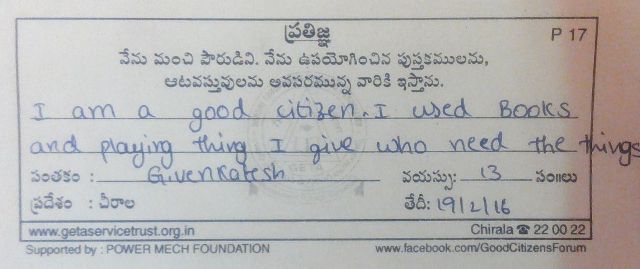 ప్రతిజ్ఞ P 17
నేను మంచి పౌరుడిని. నేను ఉపయోగించిన పుస్తకములను,
ఆటవస్తువులను అవసరమున్న వారికి ఇస్తాను.
I am a good citizen. I used Books
and playing thing I give who need the things
సంతకం : G.venkatesh వయస్సు: 13 సం॥లు
ప్రదేశం : చీరాల తేదీ: 19/2/16
www.getaservicetrust.org.in Chirala ☎ 22 00 22
Supported by : POWER MECH FOUNDATION www.facebook.com/GoodCitizensForum